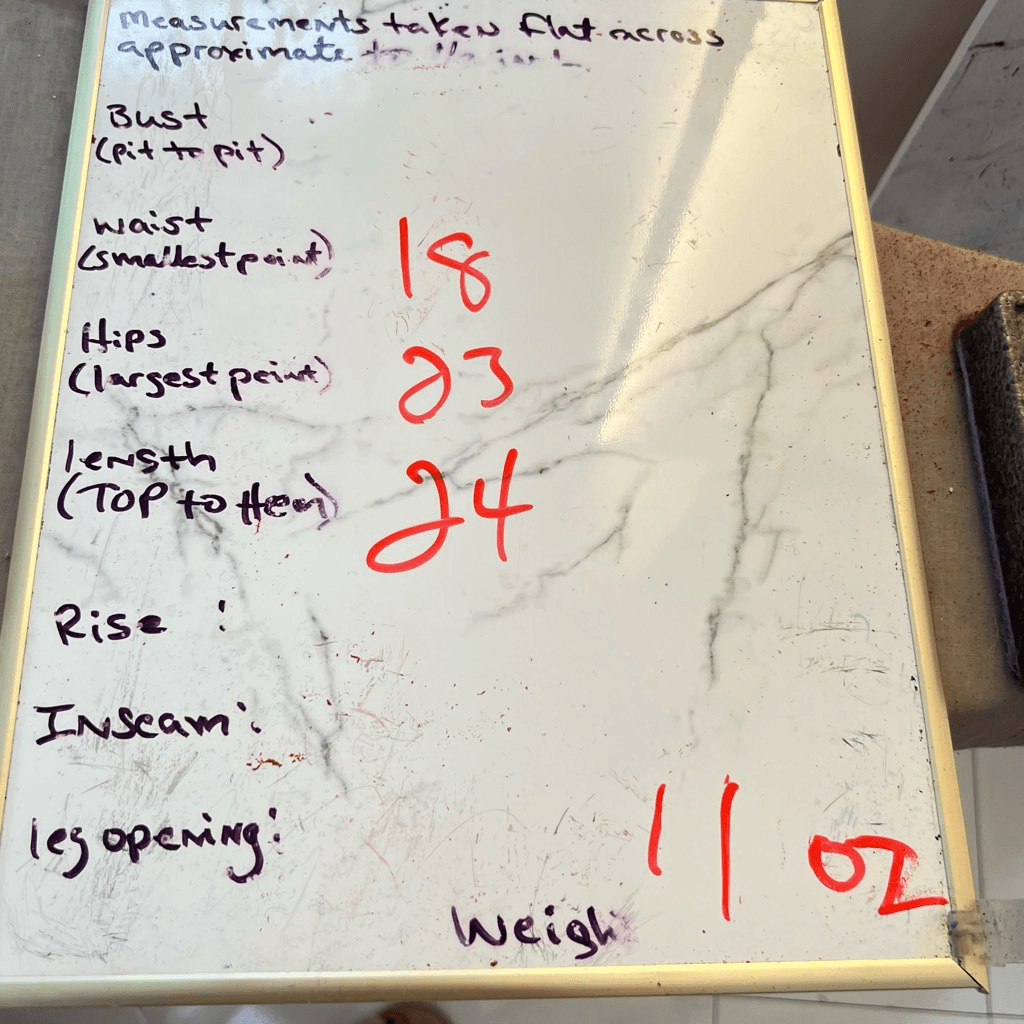 Measurements taken flat across
approximate to
Bust
(pit to pit)
waist
(smallest point) 18
Hips
(largest point) 23
length
(TOP to Hem) 24
Rise :
Inseam:
leg opening:
11 oz
Weigh